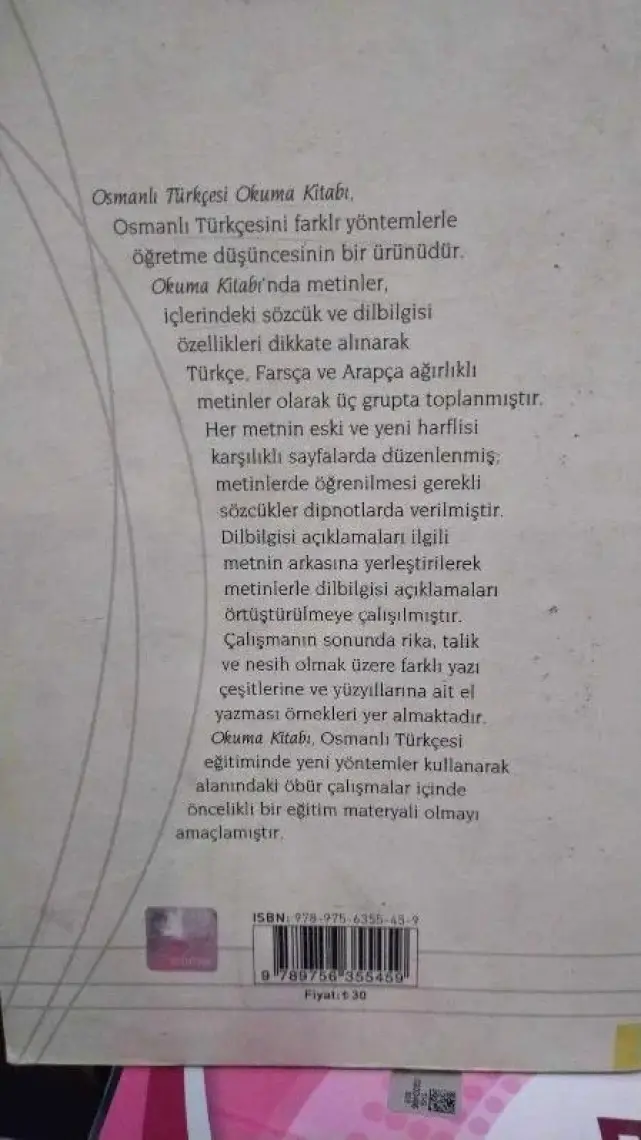 Osmanlı Türkçesi Okuma Kitabı,
Osmanlı Türkçesini farklı yöntemlerle
öğretme düşüncesinin bir ürünüdür.
Okuma Kitabı'nda metinler,
içlerindeki sözcük ve dilbilgisi
özellikleri dikkate alınarak
Türkçe, Farsça ve Arapça ağırlıklı
metinler olarak üç grupta toplanmıştır.
Her metnin eski ve yeni harflisi
karşılıklı sayfalarda düzenlenmiş;
metinlerde öğrenilmesi gerekli
sözcükler dipnotlarda verilmiştir.
Dilbilgisi açıklamaları ilgili
metnin arkasına yerleştirilerek
metinlerle dilbilgisi açıklamaları
örtüştürülmeye çalışılmıştır.
Çalışmanın sonunda rika, talik
ve nesih olmak üzere farklı yazı
çeşitlerine ve yüzyıllarına ait el
yazması örnekleri yer almaktadır.
Okuma Kitabı, Osmanlı Türkçesi
eğitiminde yeni yöntemler kullanarak
alanındaki öbür çalışmalar içinde
öncelikli bir eğitim materyali olmayı
amaçlamıştır.
ISBN: 978-975-6355-45-9
9 789756 355459
Fiyat: ₺ 30